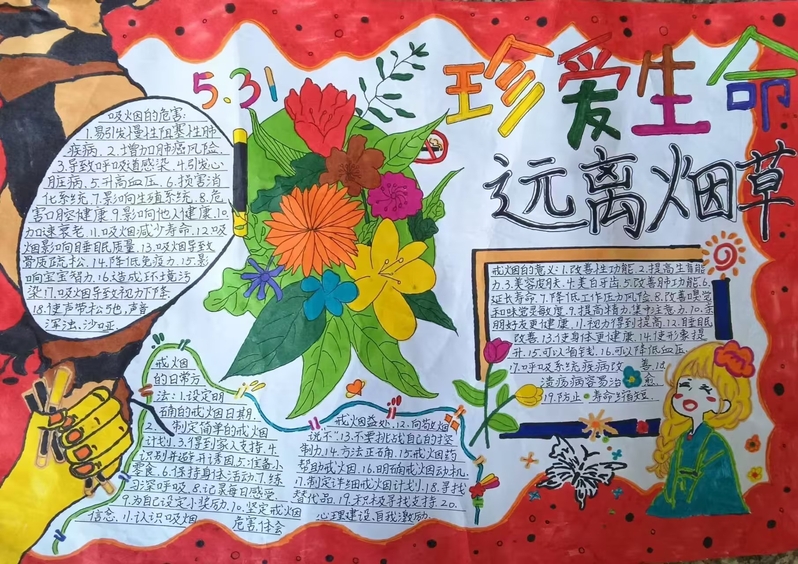 5.31
珍爱生命
远离烟草
吸烟的危害:
1.易引发慢性阻塞性肺
疾病.2.增加肺癌风险.
3.导致呼吸道感染.4.引发心
脏病.5.升高血压.6.损害消
化系统.7.影响生殖系统.8.危
害口腔健康.9.影响他人健康.10.
加速衰老.11.吸烟减少寿命.12.吸
烟影响睡眠质量.13.吸烟导致
骨质疏松.14.降低免疫力.15.影
响宝宝智力.16.造成环境污
染.17.吸烟导致视力下降.
18.使声带松弛,声音
浑浊、沙哑.
戒烟的意义:1.改善性功能.2.提高生育能
力.3.美容皮肤.4.美白牙齿.5.改善肺功能.6.
延长寿命.7.降低工作压力风险.8.改善嗅觉
和味觉灵敏度.9.提高精力,集中注意力.10.亲
朋好友更健康.11.视力得到提高.12.睡眠
改善.13.使身体更健康.14.使形象提
升.15.可以省钱.16.可以降低血压.
17.呼吸系统疾病改善.18.
溃疡病容易治愈.
19.防止寿命缩短.
戒烟
的日常方
法:1.设定明
确的戒烟日期.
2.制定简单的戒烟
计划.3.得到家人支持.4.
识别并避开诱因.5.准备小
零食.6.保持身体活动.7.练
习深呼吸.8.记录每日感受.
9.为自己设定小奖励.10.坚定戒烟
信念.11.认识吸烟
危害体会
戒烟益处.12.向敬烟
说“不”.13.不要挑战自己的控
制力.14.方法正确.15.戒烟药
帮助戒烟.16.明确戒烟动机.
17.制定详细戒烟计划.18.寻找
替代品.19.积极寻找支持.20.
心理建设、自我激励.